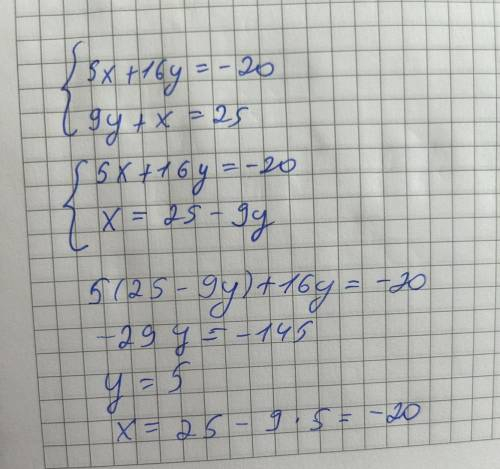 { 5x+16y=-20
9y+x=25
{ 5x+16y=-20
x=25-9y
5(25-9y)+16y=-20
-29y=-145
y=5
x=25-9·5=-20